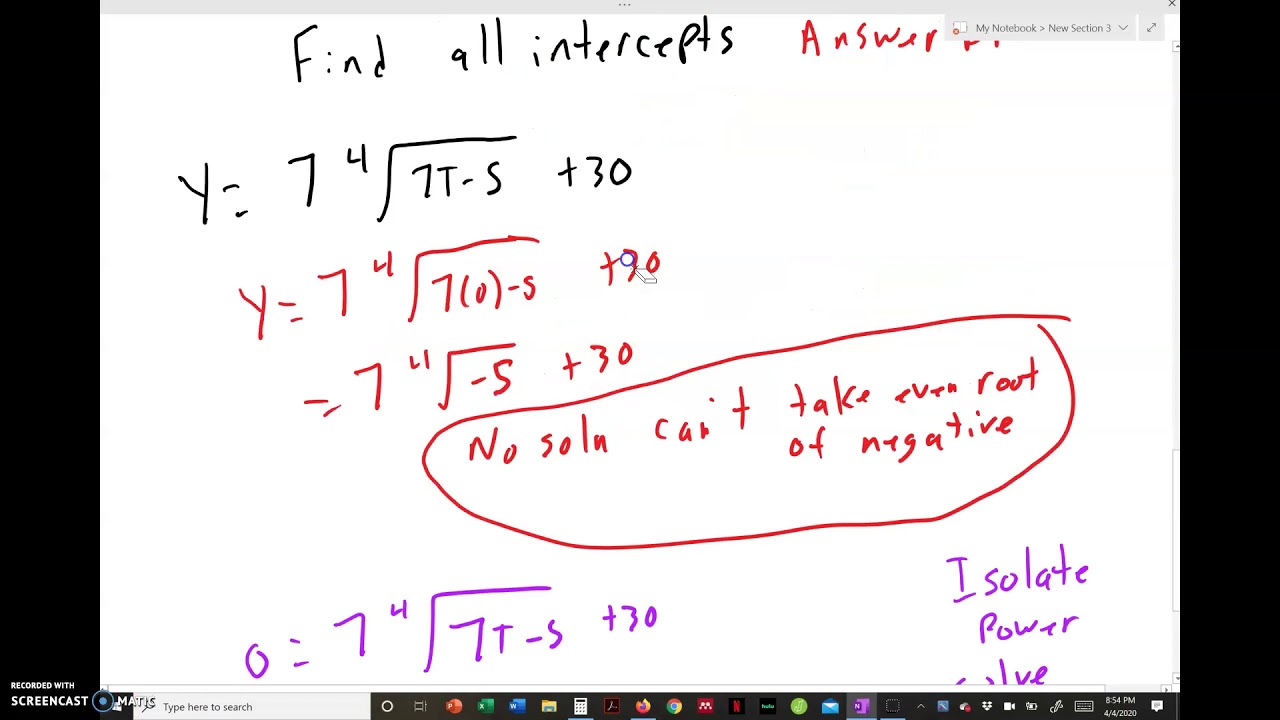 My Notebook > New Section 3
Find all intercepts Answer
Y = 7 ⁴√7T-5 +30
Y = 7 ⁴√7(0)-5 +30
= 7 ⁴√-5 +30
No soln can't take even root
of negative
Isolate
Power
solve
0 = 7 ⁴√7T-5 +30
RECORDED WITH
SCREENCAST MATIC
Type here to search
hulu
8:54 PM
4/4/2020